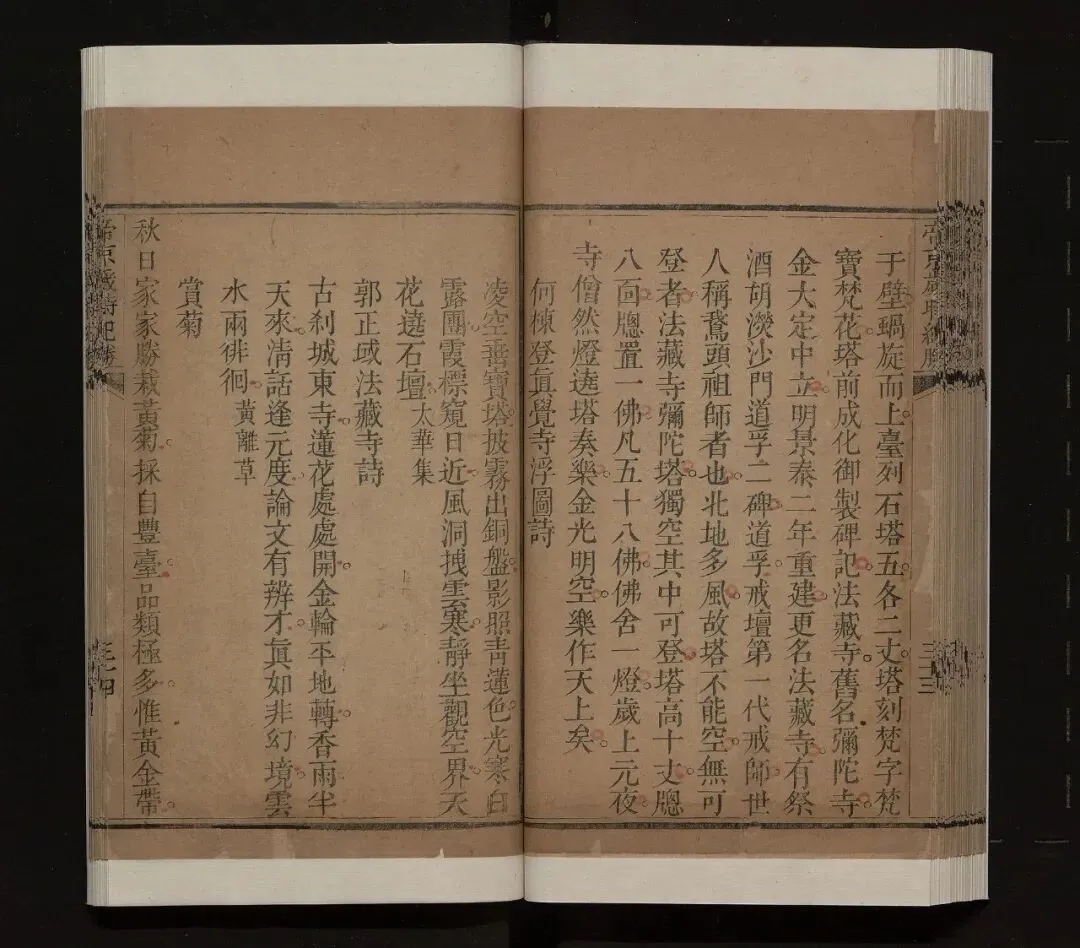 于壁蝸旋而上臺列石塔五各二丈塔刻梵字梵
寶梵花塔前成化御製碑記法藏寺舊名彌陀寺
金大定中立明景泰二年重建更名法藏寺有祭
酒胡濙沙門道孚二碑道孚戒壇第一代戒師世
人稱鵞頭祖師者也北地多風故塔不能空無可
登者法藏寺彌陀塔獨空其中可登塔高十丈牕
八面牕置一佛凡五十八佛佛舍一燈歲上元夜
寺僧然燈遶塔奏樂金光明空樂作天上矣
何棟登眞覺寺浮圖詩
凌空垂寶塔披霧出銅盤影照靑蓮色光寒白
露團霞標窺日近風洞拽雲寒靜坐觀空界天
花遶石壇太華集
郭正域法藏寺詩
古刹城東寺蓮花處處開金輪平地轉香雨半
天來淸話逢元度論文有辨才眞如非幻境雲
水兩徘徊黃離草
賞菊
秋日家家勝栽黃菊採自豐臺品類極多惟黃金帶
帝京歲時紀勝
三十四